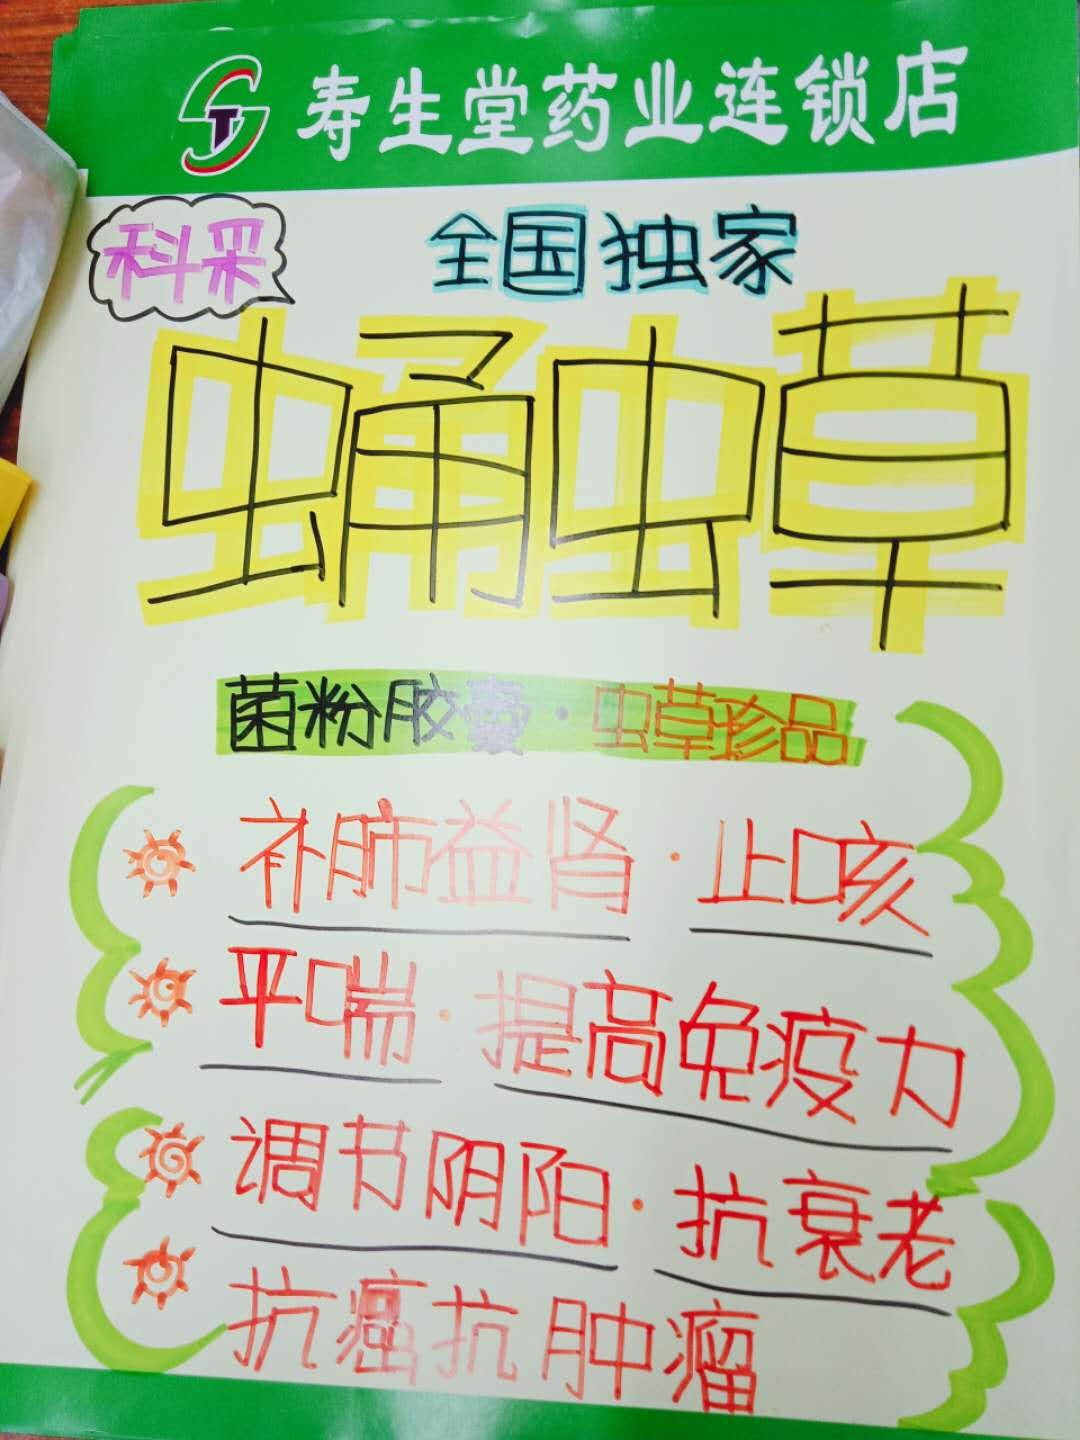 寿生堂药业连锁店
科采
全国独家
蛹虫草
菌粉胶囊·虫草珍品
补肺益肾·止咳
平喘·提高免疫力
调节阴阳·抗衰老
抗癌抗肿瘤